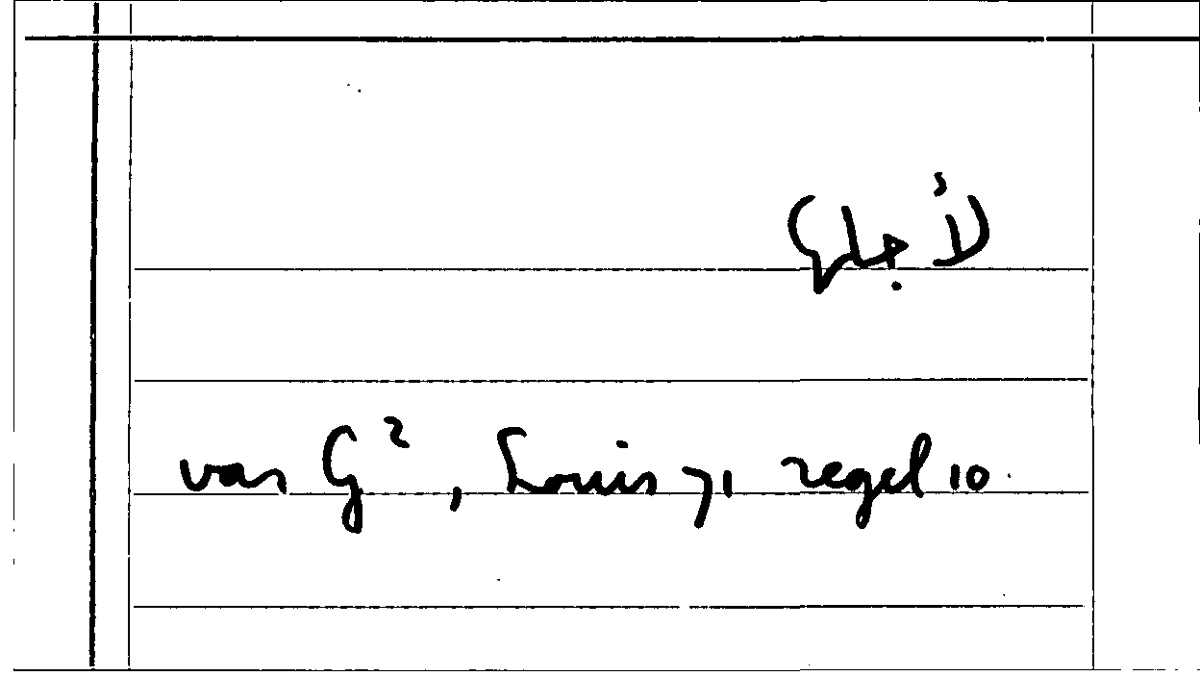 لأجلها
van G², Louis 71 regel 10